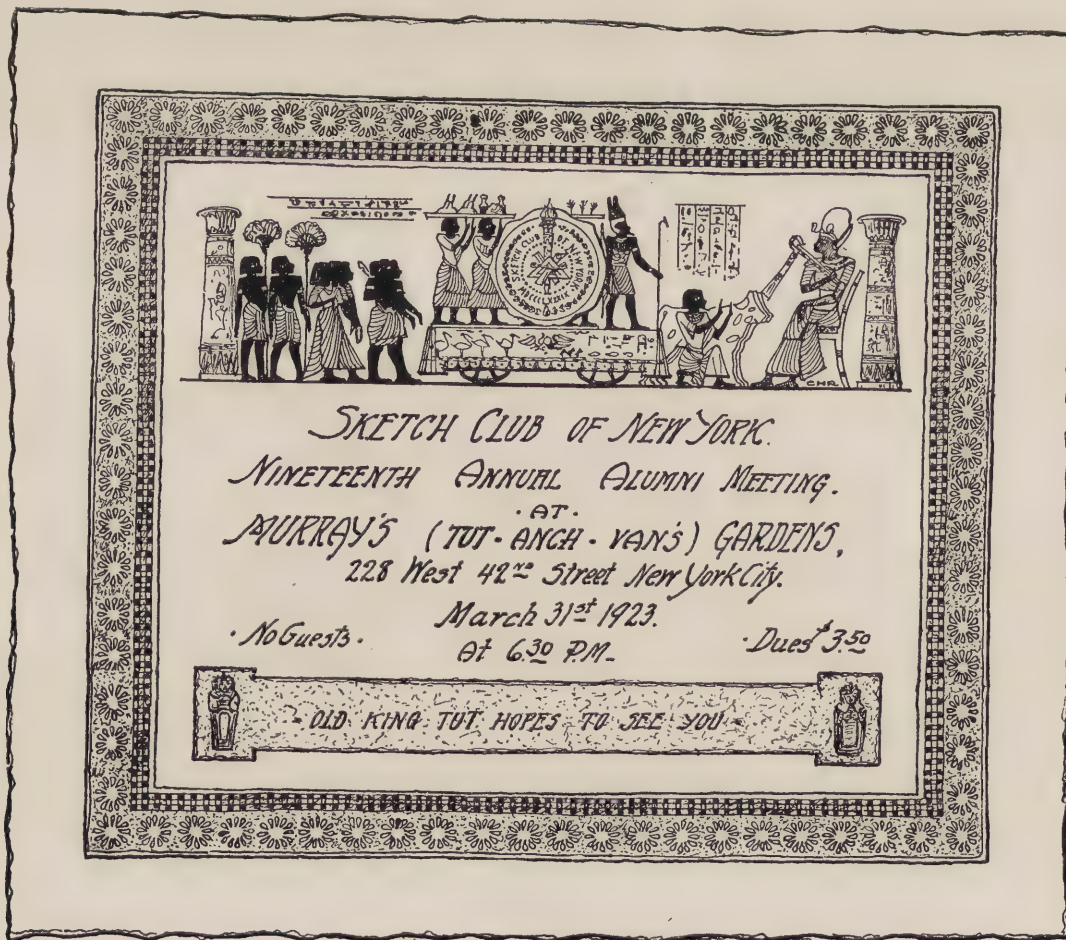 SKETCH CLUB OF NEW YORK
CHR
SKETCH CLUB OF NEW YORK.
NINETEENTH ANNUAL ALUMNI MEETING.
· AT ·
MURRAY'S (TUT - ANCH - VAN'S) GARDENS,
228 West 42ND Street New York City.
March 31st 1923.
· No Guests ·
At 6.30 P.M.
· Dues $3.50
- OLD KING TUT HOPES TO SEE YOU -